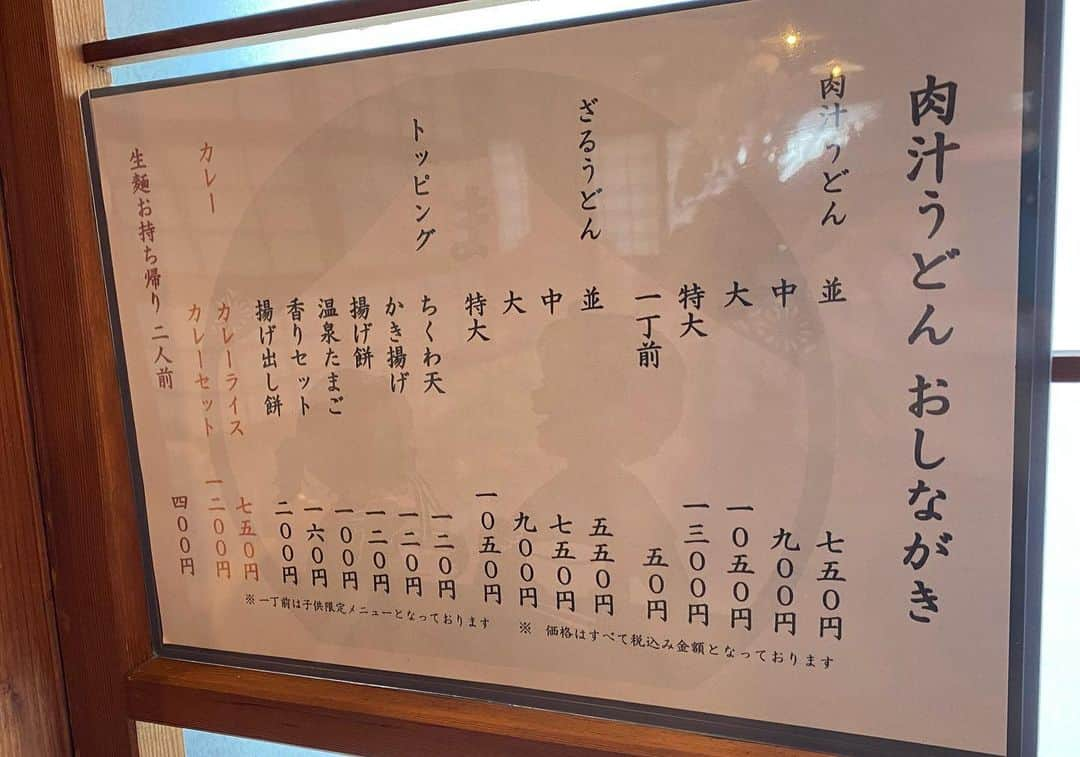 肉汁うどん おしながき
肉汁うどん 並 七五〇円
中 九〇〇円
大 一〇五〇円
特大 一三〇〇円
一丁前 五〇円
ざるうどん 並 五五〇円
中 七五〇円
大 九〇〇円
特大 一〇五〇円
トッピング ちくわ天 一二〇円
かき揚げ 一二〇円
揚げ餅 一二〇円
温泉たまご 一〇〇円
香りセット 一六〇円
揚げ出し餅 二〇〇円
カレー カレーライス 七五〇円
カレーセット 一二〇〇円
生麺お持ち帰り 二人前 四〇〇円
※ 一丁前は子供限定メニューとなっております
※ 価格はすべて税込み金額となっております